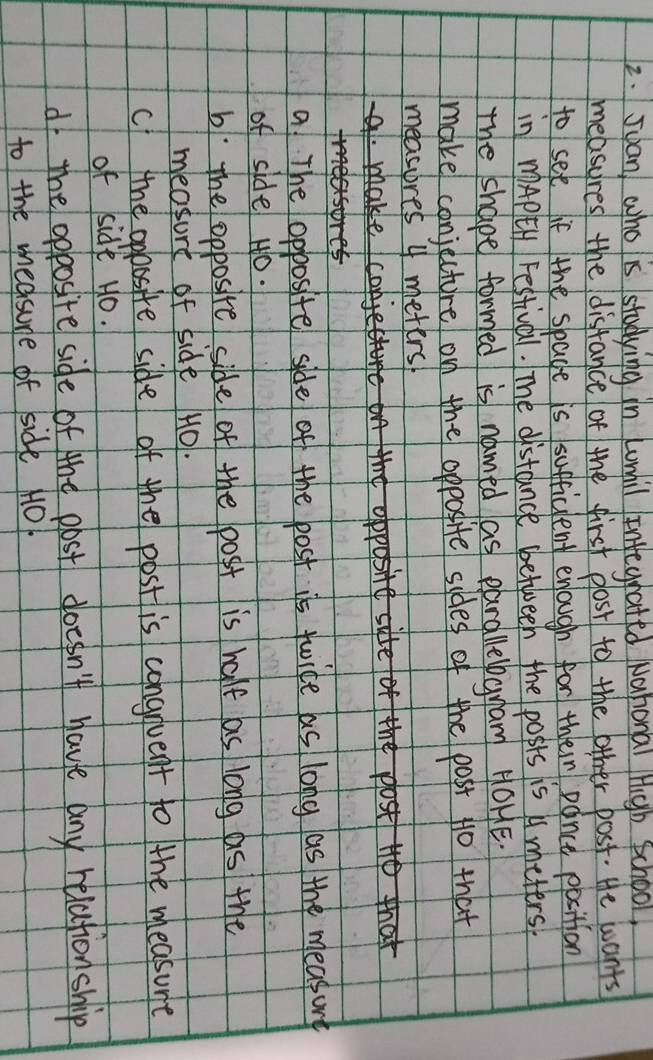 2. Juan, who is studying in Lumil Integrated National High School,
measures the distance of the first post to the other post. He wants
to see if the space is sufficient enough for their dance position
in MAPEH Festival. The distance between the posts is 4 meters.
The shape formed is named as parallelogram HOME.
Make conjecture on the opposite sides of the post HO that
measures 4 meters.
a. Make conjecture on the opposite side of the post HO that
measures
a. The opposite side of the post is twice as long as the measure
of side HO.
b. The opposite side of the post is half as long as the
measure of side HO.
c. The opposite side of the post is congruent to the measure
of side HO.
d. The opposite side of the post doesn't have any relationship
to the measure of side HO.